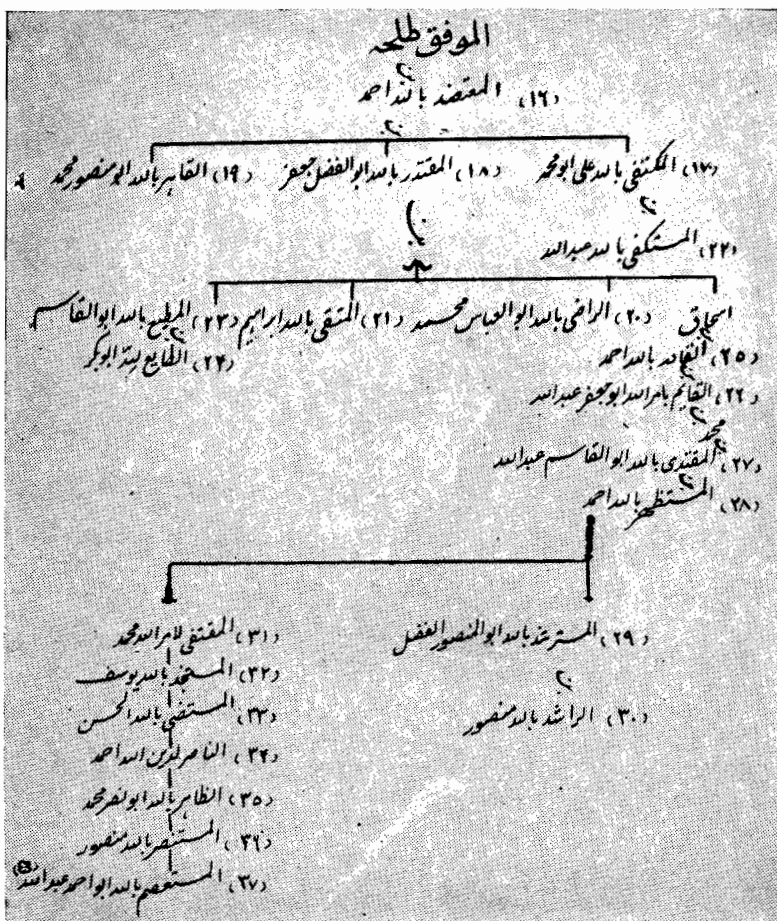 الموفق طلحہ
بن
(۱۶) المعتضد باللہ احمد
بن
(۱۷) المکتفی باللہ علی ابو محمد (۱۸) المقتدر باللہ ابو الفضل جعفر (۱۹) القاہر باللہ ابو منصور محمد
بن بن
(۲۲) المستکفی باللہ عبداللہ
اسحاق (۲۰) الراضی باللہ ابو العباس محمد (۲۱) المتقی باللہ ابراہیم (۲۳) المطیع باللہ ابو القاسم
بن بن
(۲۵) القادر باللہ احمد (۲۴) الطایع للہ ابوبکر
بن
(۲۲) القایم بامر اللہ ابو جعفر عبداللہ
بن
محمد
بن
(۲۷) المقتدی باللہ ابو القاسم عبداللہ
بن
(۲۸) المستظہر باللہ احمد
(۲۹) المسترشد باللہ ابو المنصور الفضل (۳۱) المقتفی لامر اللہ محمد
بن (۳۲) المستنجد باللہ یوسف
(۳۰) الراشد باللہ منصور (۳۳) المستضی باللہ الحسن
(۳۴) الناصر لدین اللہ احمد
(۳۵) الظاہر باللہ ابو نصر محمد
(۳۶) المستنصر باللہ منصور
(۳۷) المستعصم باللہ ابو احمد عبداللہ